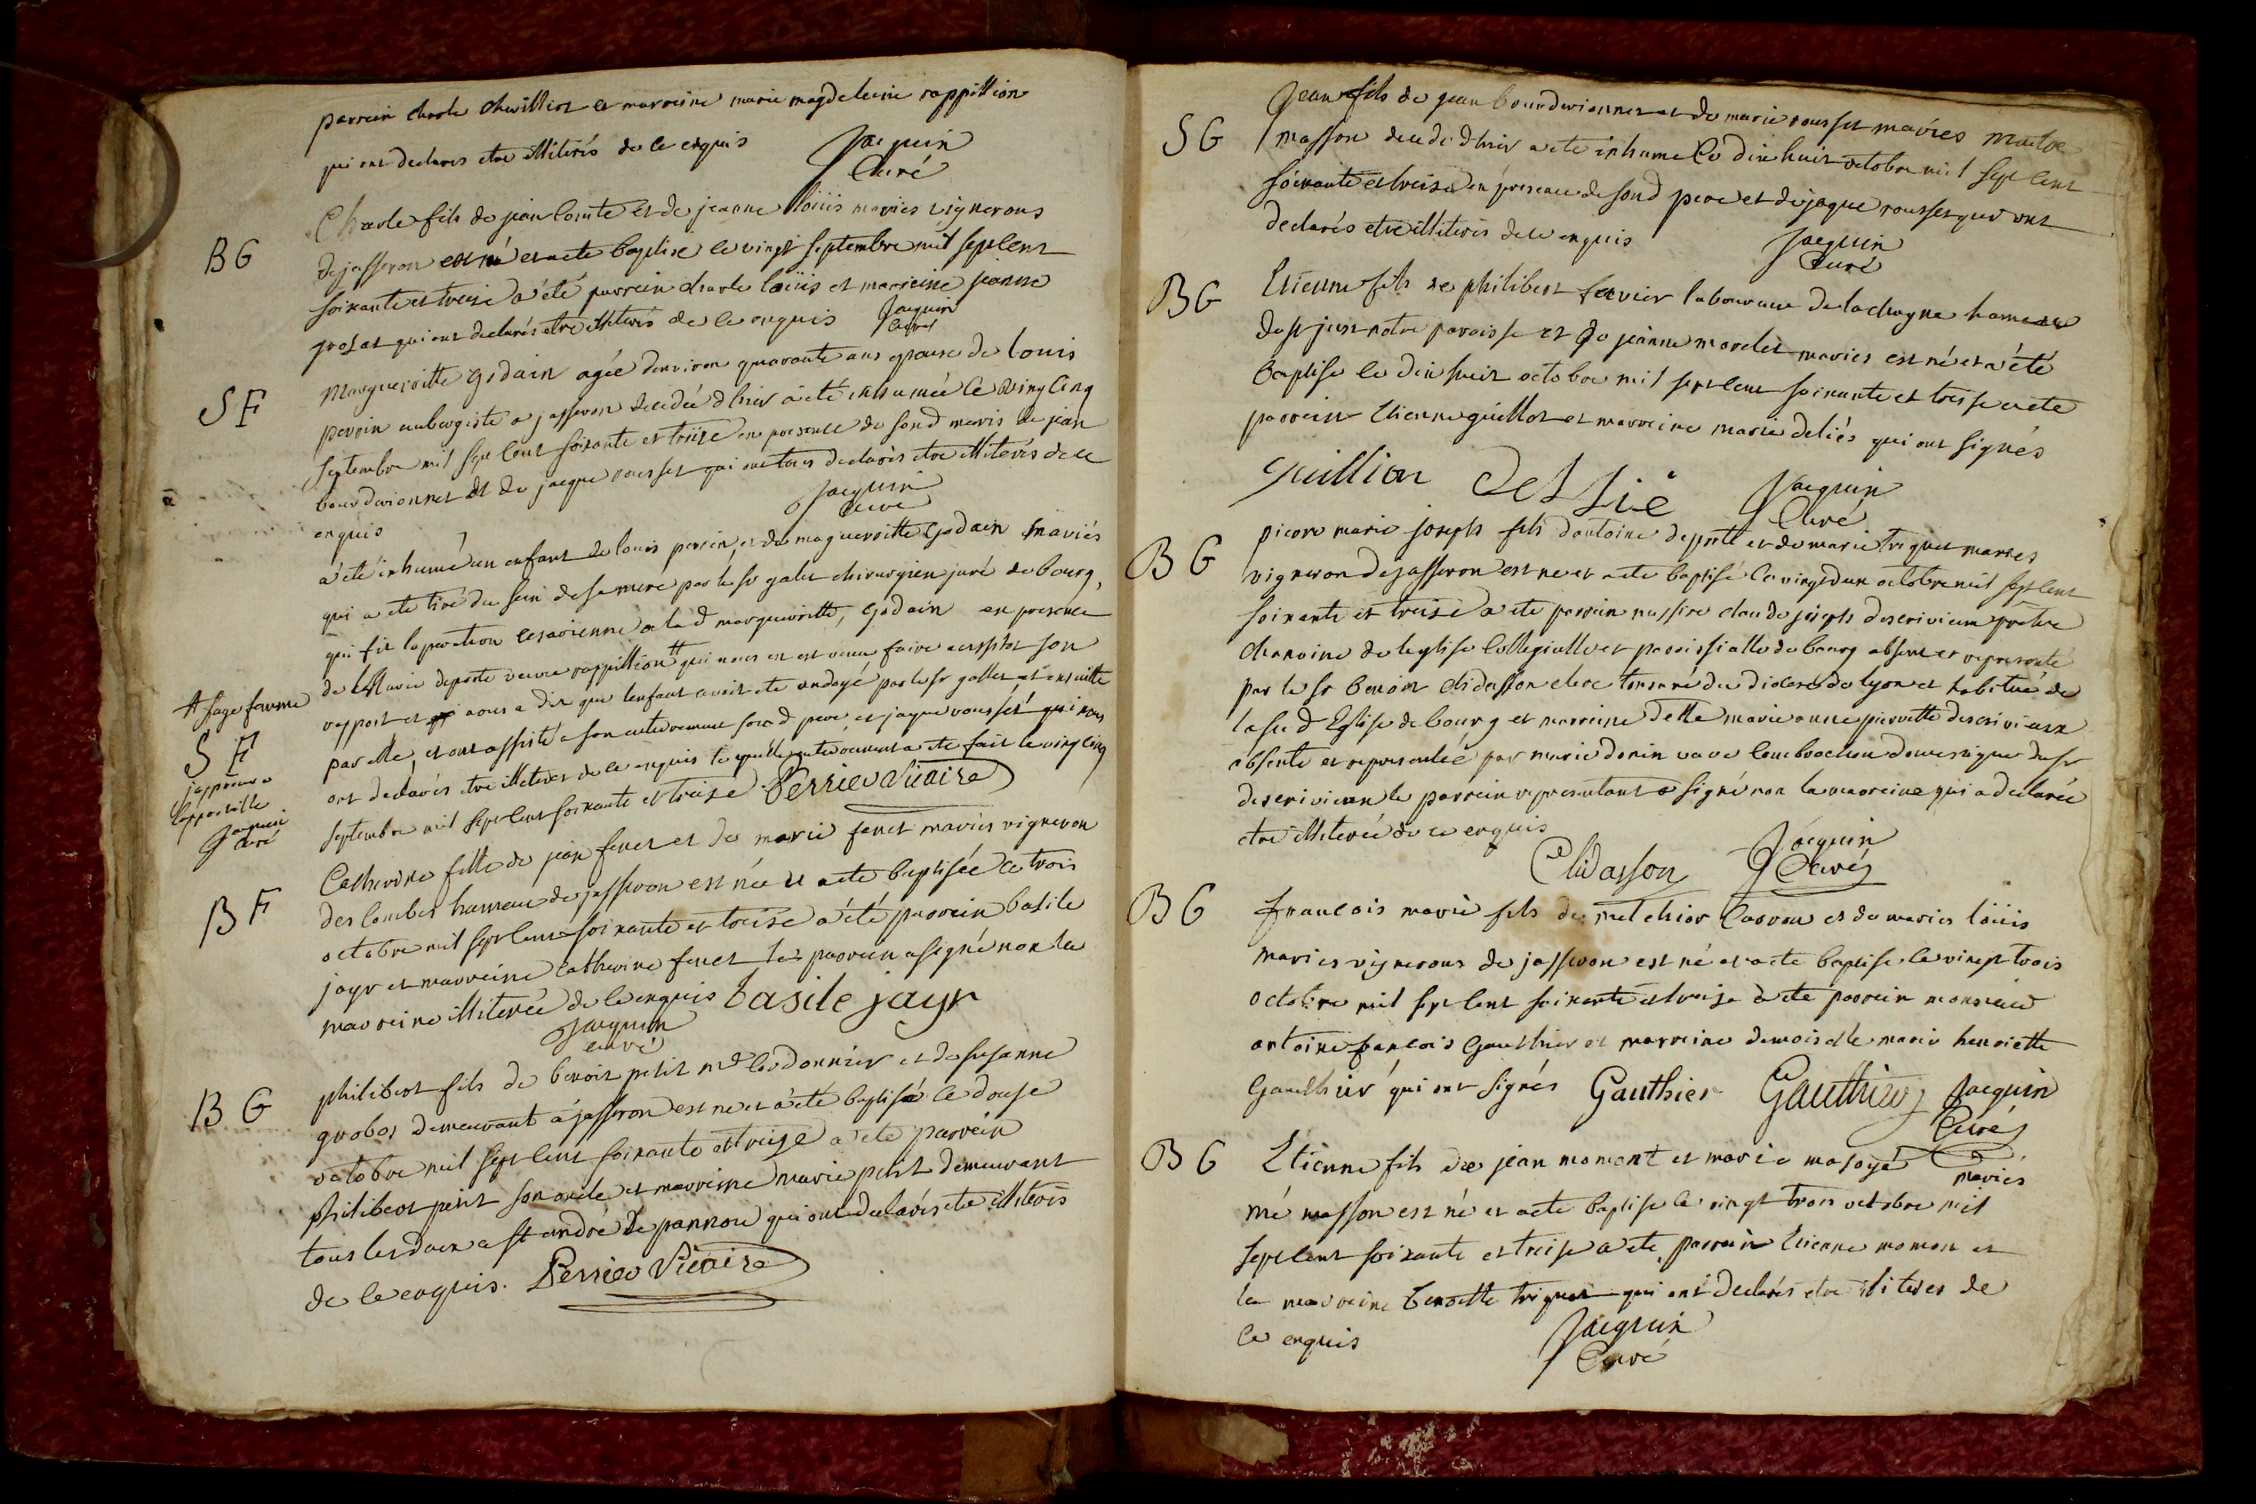 parrein charle chevillion et marreine marie magdeleine rappillion
qui ont declares etre illiterés de ce enquis Jacquin
Curé
BG
Charle fils de jean comte et de jeanne loüis mariés vignerons
de jasseron est né et a ete baptise le vingt septembre mil sept cent
soixante et treise a été parrein charle loüis et marreine jeanne
qui ont declarés etre illiterés de ce enquis Jacquin
Curé
SF
Margueritte godain agée denviron quarante ans epouse de louis
perrin aubergiste a jasseron decedée dhier a été inhumée le vingt cinq
septembre mil sept cent soixante et treize en presence de sond maris de jean
bourderionnet et de jacque rousset qui ont tous declarés etre illiterés de ce
enquis Jacquin
Curé
a été inhumé un enfant de louis perrin et de margueritte godain mariés
qui a ete tiré du sein de sa mere par le sr galet chirurgien juré de bourg,
qui fit loperation cesarienne a la d margueritte godain en presence
de Marie deporte veuve rappillion # qui nous en est venu faire aussitot son
# sage femme
rapport et nous a dit que lenfant avoit ete ondoyé par le sr gallet et ensuitte
par elle, et ont assisté a son enterrement sond pere et jaque rousset qui nous
SF
ont declarés etre illiterés de ce enquis le quel enterrement a ete fait le vingt cinq
septembre mil sept cent soixante et treize. Perrier Vicaire
japprouve
lappostille
Jacquin
Curé
BF
Catherine fille de jean feret et de marie feret mariés vigneron
des combes hameau de jasseron est née et a ete baptisée le trois
octobre mil sept cent soixante et treise a été parrein basile
jayr et marreine catherine feret le parrein a signé non la
marreine illiterée de ce enquis basile jayr
Jacquin
curé
BG
philibert fils de benoit petit md cordonnier et de susanne
grobos demeurant a jasseron est ne et a été baptisé le douse
octobre mil sept cent soixante et treize a ete parrein
philibert petit son oncle et marreine marie petit demeurant
tous les deux a st andré le pannou qui ont declarés etre illiterés
de ce enquis. Perrier Vicaire
SG
Jean fils de jean bourderionnet et de marie rousset mariés maitre
masson decedé dhier a ete inhumé le dix huit octobre mil sept cent
soixante et treise en presence de sond pere et de jaque rousset qui ont
declarés etre illiterés de ce enquis Jacquin
Curé
BG
Etienne fils de philibert fervier laboureur de lachagne hameau
de st just notre paroisse et de jeanne morelet mariés est né et a été
baptise le dix huit octobre mil sept cent soixante et treise a ete
parrein Etienne guillot et marreine marie deliés qui ont signés
guillion delliè Jacquin
Curé
BG
pierre marie joseph fils dantoine deporte et de marie triquet mariés
vigneron de jasseron est ne et a ete baptisé le vingt dun octobre mil sept cent
soixante et treise a ete parrein messire claude joseph descrivieux prêtre
chanoine de leglise collegialle et paroissialle de bourg absent et representé
par le sr benoit chidasson clerc tonsuré du diocese de lyon et habitué de
la sud Eglise de bourg et marreine Delle marie anne pierrette descrivieux
absente et representée par marie donin veuve combrochon domestique du sr
descrivieux le parrein representant a signé non la marreine qui a declarée
etre illiterée de ce enquis
Chidasson Jacquin
Curé
BG
francois marie fils de melchior carron et de marie loüis
mariés vignerons de jasseron est né et a ete baptise le vingt trois
octobre mil sept cent soixante et treise a ete parrein monsieur
antoine francois Gauthier et marreine demoiselle marie henriette
Gauthier qui ont signés Gauthier Gauthier Jacquin
Curé
BG
Etienne fils de jean momont et marie masoyé mariés
mé masson est né et a ete baptise le vingt trois octobre mil
sept cent soixante et treise a ete parrein Etienne momon et
la marreine benoitte triquet qui ont declarés etre iliteres de
ce enquis Jacquin
Curé